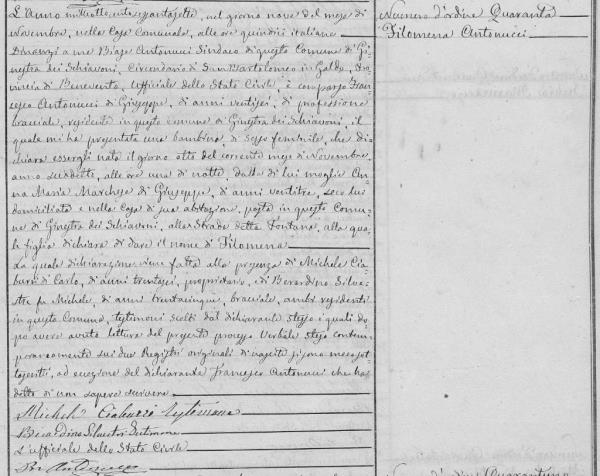 L'Anno milleottocentosessantasette, nel giorno nove del mese di
Novembre, nella Casa Comunale, alle ore quindici italiane
Dinanzi a me Biase Antonucci Sindaco di questo Comune di Gi=
nestra dei Schiavoni, Circondario di San Bartolomeo in Galdo, Pro=
vincia di Benevento, Uffiziale dello Stato Civile, è comparso Fran=
cesco Antonucci di Giuseppe, di anni ventisei, di professione
bracciale, residente in questo comune di Ginestra dei Schiavoni, il
quale mi ha presentata una bambina, di sesso feminile, che di=
chiara essergli nata il giorno otto del corrente mese di Novembre,
anno suddetto, alle ore una di notte, dalla di lui moglie An=
na Maria Marchese di Giuseppe, di anni ventitre, seco lui
domiciliata e nella Casa di sua abitazione, posta in questo Comu=
ne di Ginestra dei Schiavoni, alla strada detta Fontana, alla qua=
le figlia dichiara di dare il nome di Filomena
La quale dichiarazione viene fatta alla presenza di Michele Cia=
burri di Carlo, di anni trentasei, proprietario, e di Berardino Silve=
stre fu Michele, di anni trentacinque, bracciale, ambi residenti
in questo Comune, testimoni scelti dal dichiarante stesso e quali do=
po avere avuto lettura del presente processo verbale steso contem=
poraneamente sui due Registri originali di nascite si sono meco sot
toscritti, ad eccezione del dichiarante Francesco Antonucci che ha
detto di non sapere scrivere
Michele Ciaburri testimone
Berardino Silvestri testimone
L'uffiziale dello Stato Civile
Numero d'ordine Quaranta
Filomena Antonucci
Numero d'ordine Quarantuno